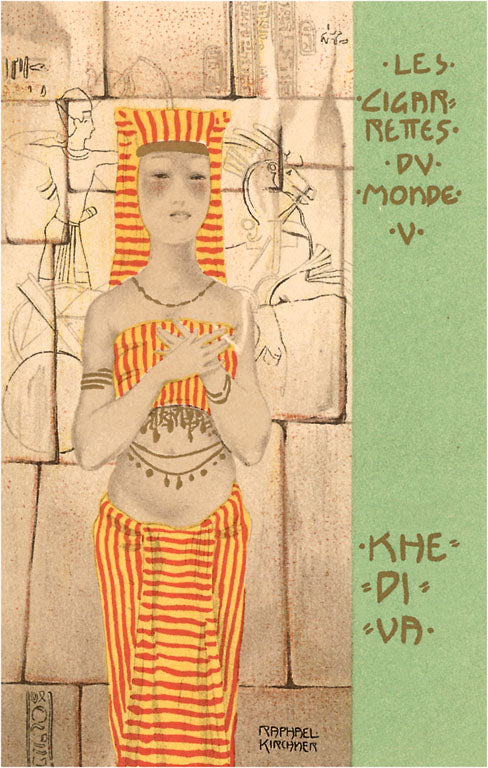 ·LES·
·CIGAR=
RETTES·
·DU·
·MONDE·
·V·
·KHE=
=DI=
=VA·
RAPHAEL
KIRCHNER